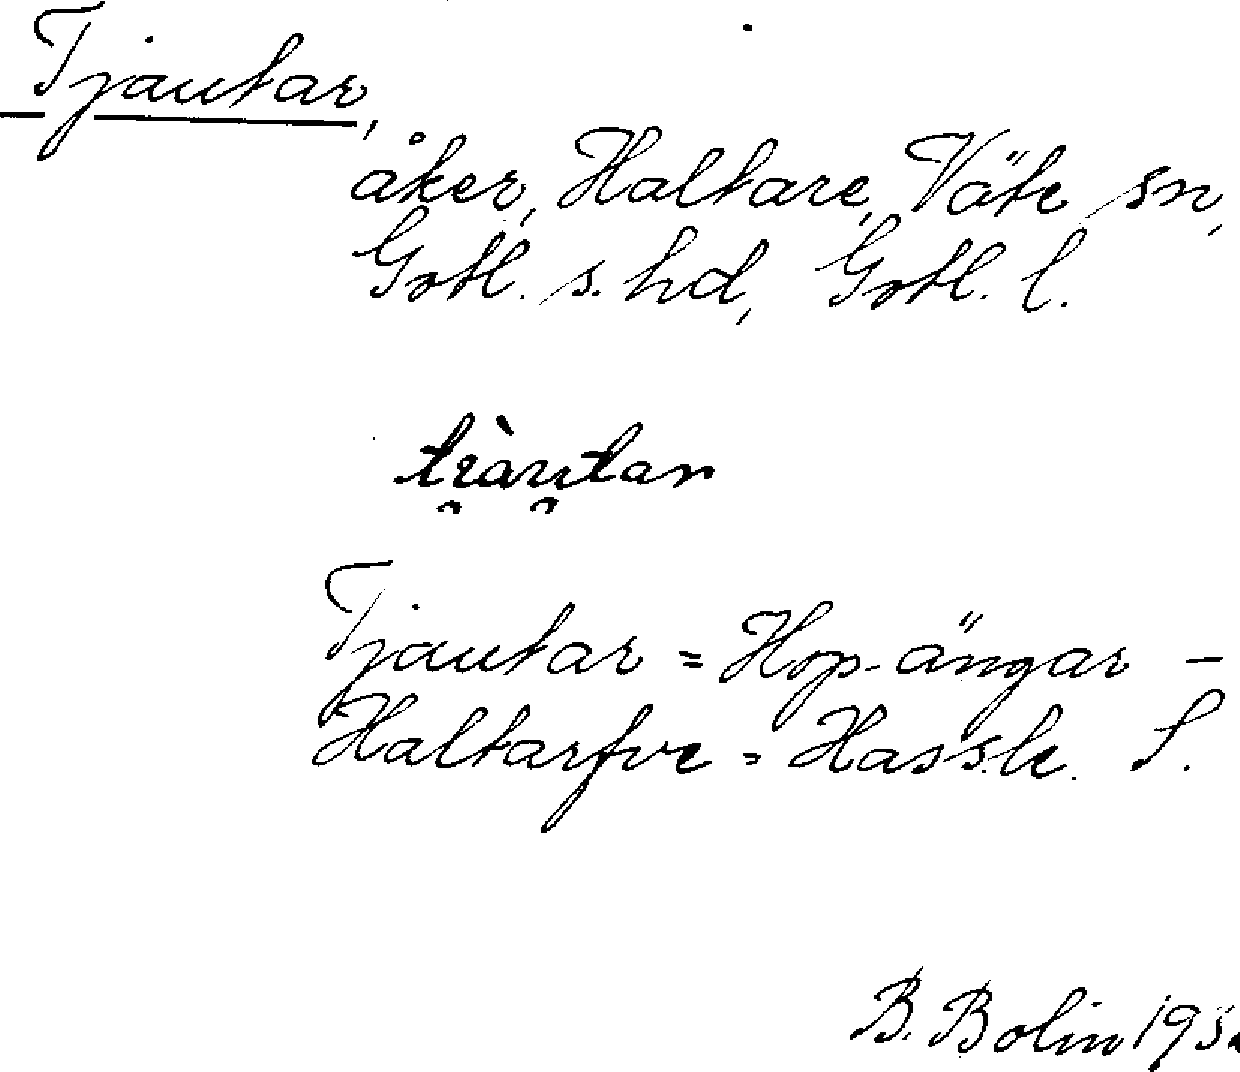 Tjautar,
åker, Haltare, Väte sn,
Gotl. s. hd, Gotl. l.
Tjautar = Hop-ängar -
Haltarfve = Hassle. S.
B. Bolin